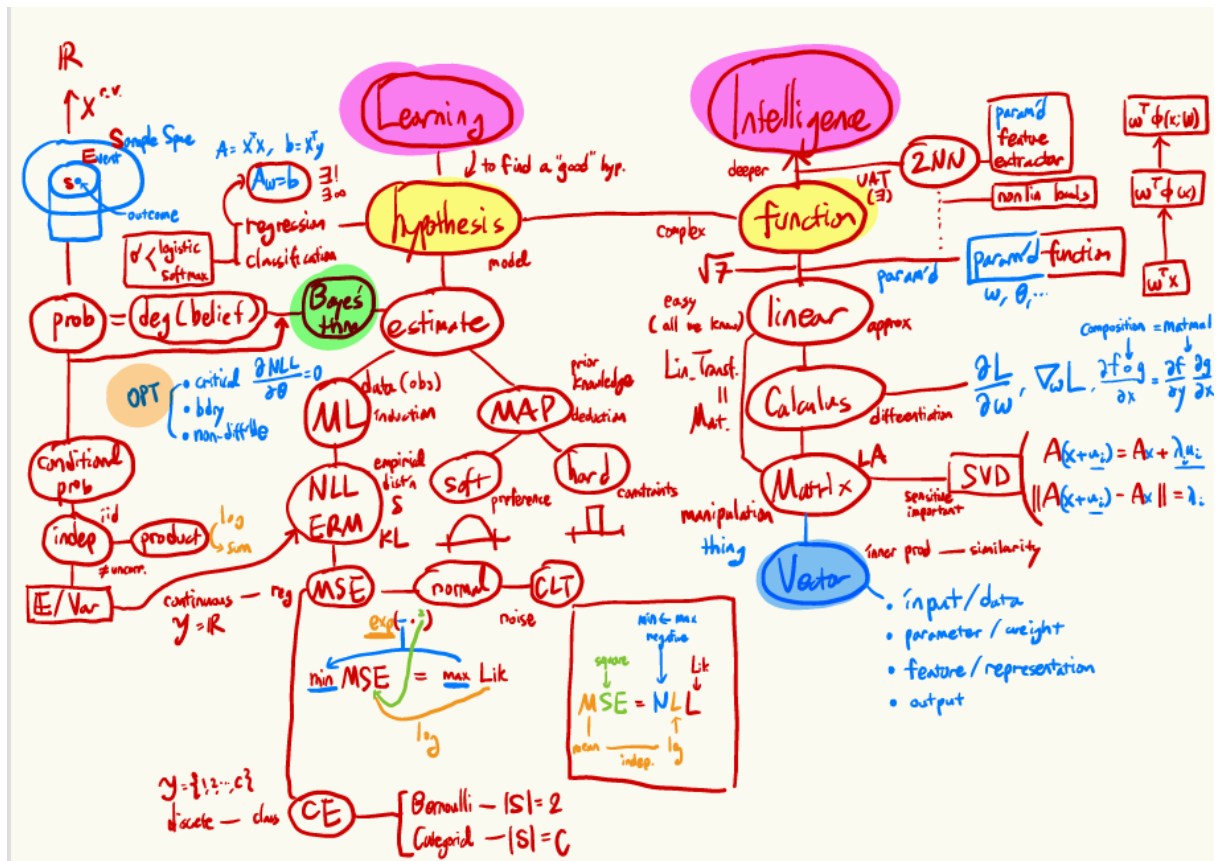 ℝ
X r.v.
Sample Space
Event
S
outcome
A = XᵀX, b = Xᵀy
Aw=b
∃!
∃∞
regression
classification
σ < logistic
softmax
Learning
to find a "good" hyp.
hypothesis
model
prob = deg(belief)
Bayes'
thm
estimate
OPT
• critical ∂NLL/∂θ = 0
• bdry
• non-diff'ble
data (obs)
ML
induction
prior
knowledge
MAP
deduction
conditional
prob
iid
indep
≠uncorr.
product
log
sum
E/Var
NLL
ERM
empirical
dist'n
S
KL
soft
preference
hard
constraints
continuous — reg
y = ℝ
MSE
normal
CLT
noise
exp(-·²)
min MSE = max Lik
log
min ← max
negative
square
Lik
MSE = NLL
mean
indep.
log
y = {1,2,...,c}
discrete — class
CE
Bernoulli — |S| = 2
Categorial — |S| = C
Intelligence
deeper
UAT
(∃)
2NN
param'd
feature
extractor
nonlin basis
ωᵀφ(x;θ)
ωᵀφ(x)
ωᵀx
function
complex
√7
param'd
param'd function
ω, θ, ...
easy
(all we know)
linear
approx
Lin. Transf.
||
Mat.
Calculus
differentiation
Composition = matmul
∂L/∂ω, ∇ωL, ∂f∘g/∂x = ∂f/∂y ∂g/∂x
Matrix
LA
manipulation
sensitive
important
SVD
A(x+uᵢ) = Ax + λuᵢ
||A(x+uᵢ) - Ax|| = λᵢ
thing
Vector
inner prod — similarity
• input/data
• parameter/weight
• feature/representation
• output